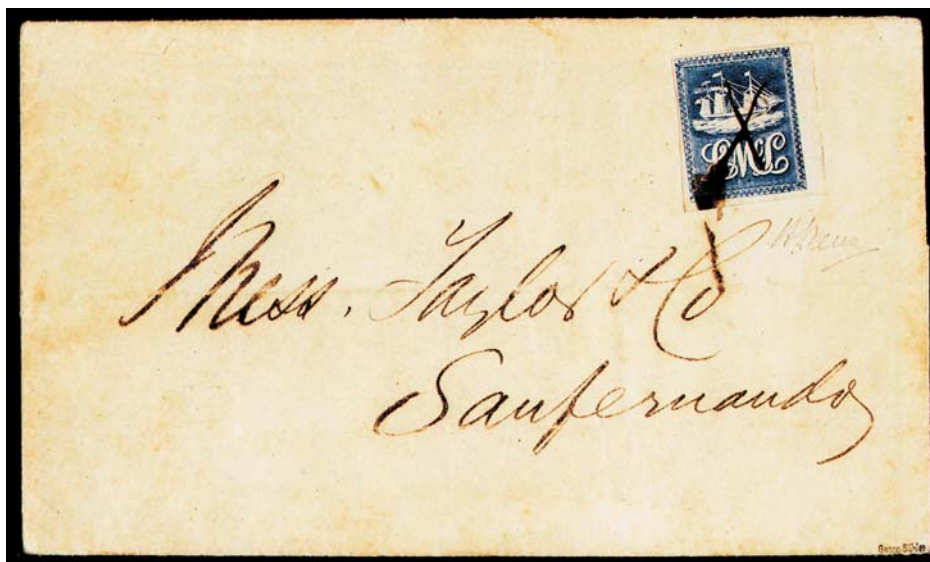 LMcL
Mess. Taylor & Co
Sanfernando